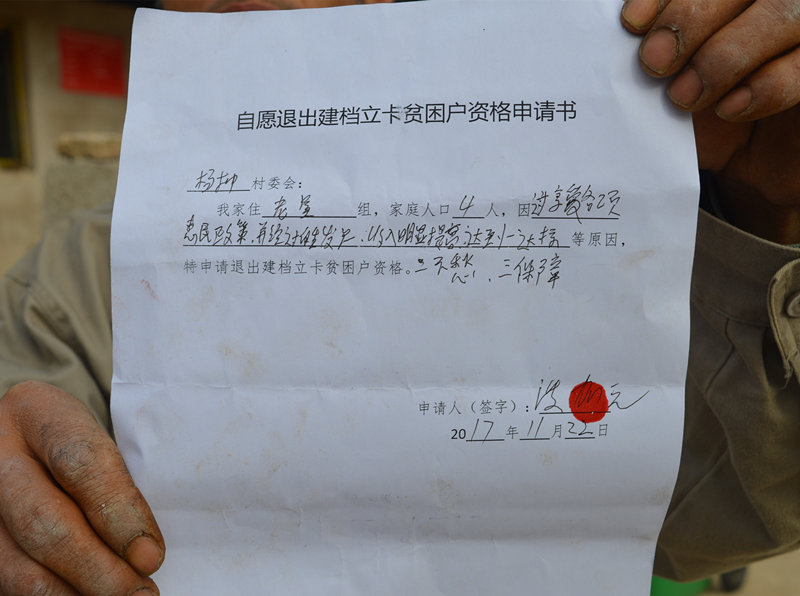 自愿退出建档立卡贫困户资格申请书
杨柳村委会:
我家住老屋组,家庭人口4人,因过享受各项
惠民政策,并经过发户,收入明显提高达到一达标等原因,
特申请退出建档立卡贫困户资格。二不愁、三保障
申请人(签字):元
2017年11月22日